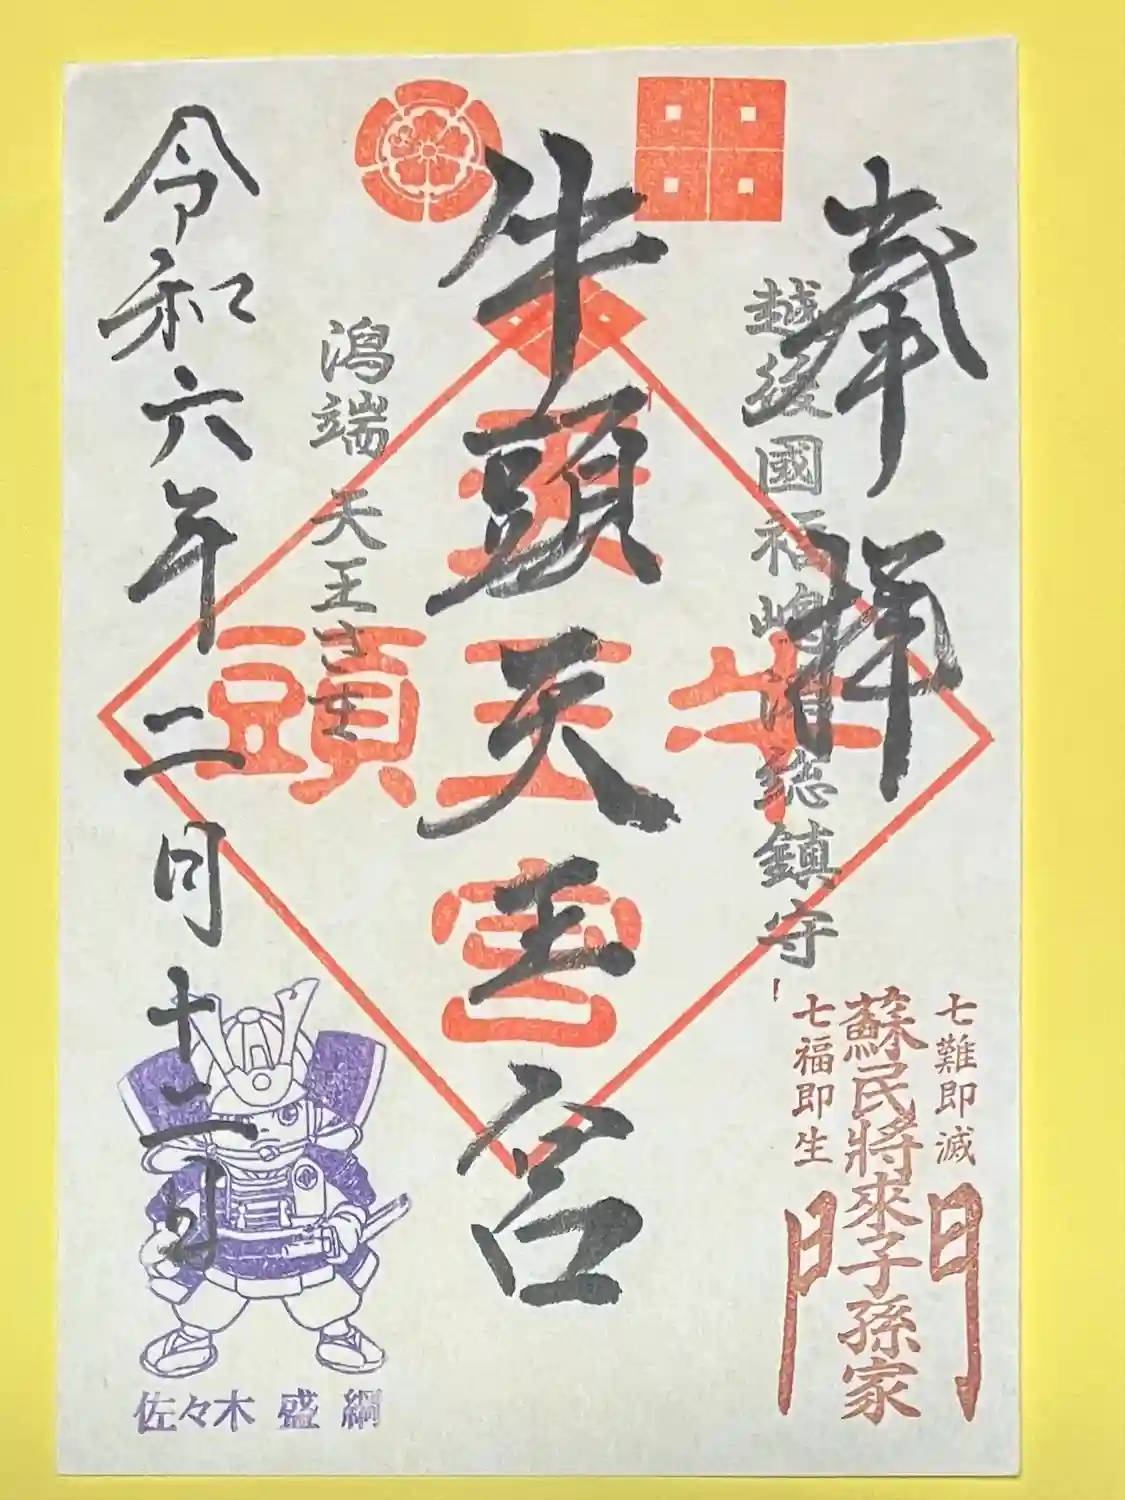 奉拝
越後國福嶋潟總鎮守
七難即滅
蘇民將來子孫家
七福即生
門
牛頭天王宮
牛頭
天王宮
潟端 天王
令和六年二月十二日
佐々木 盛 綱